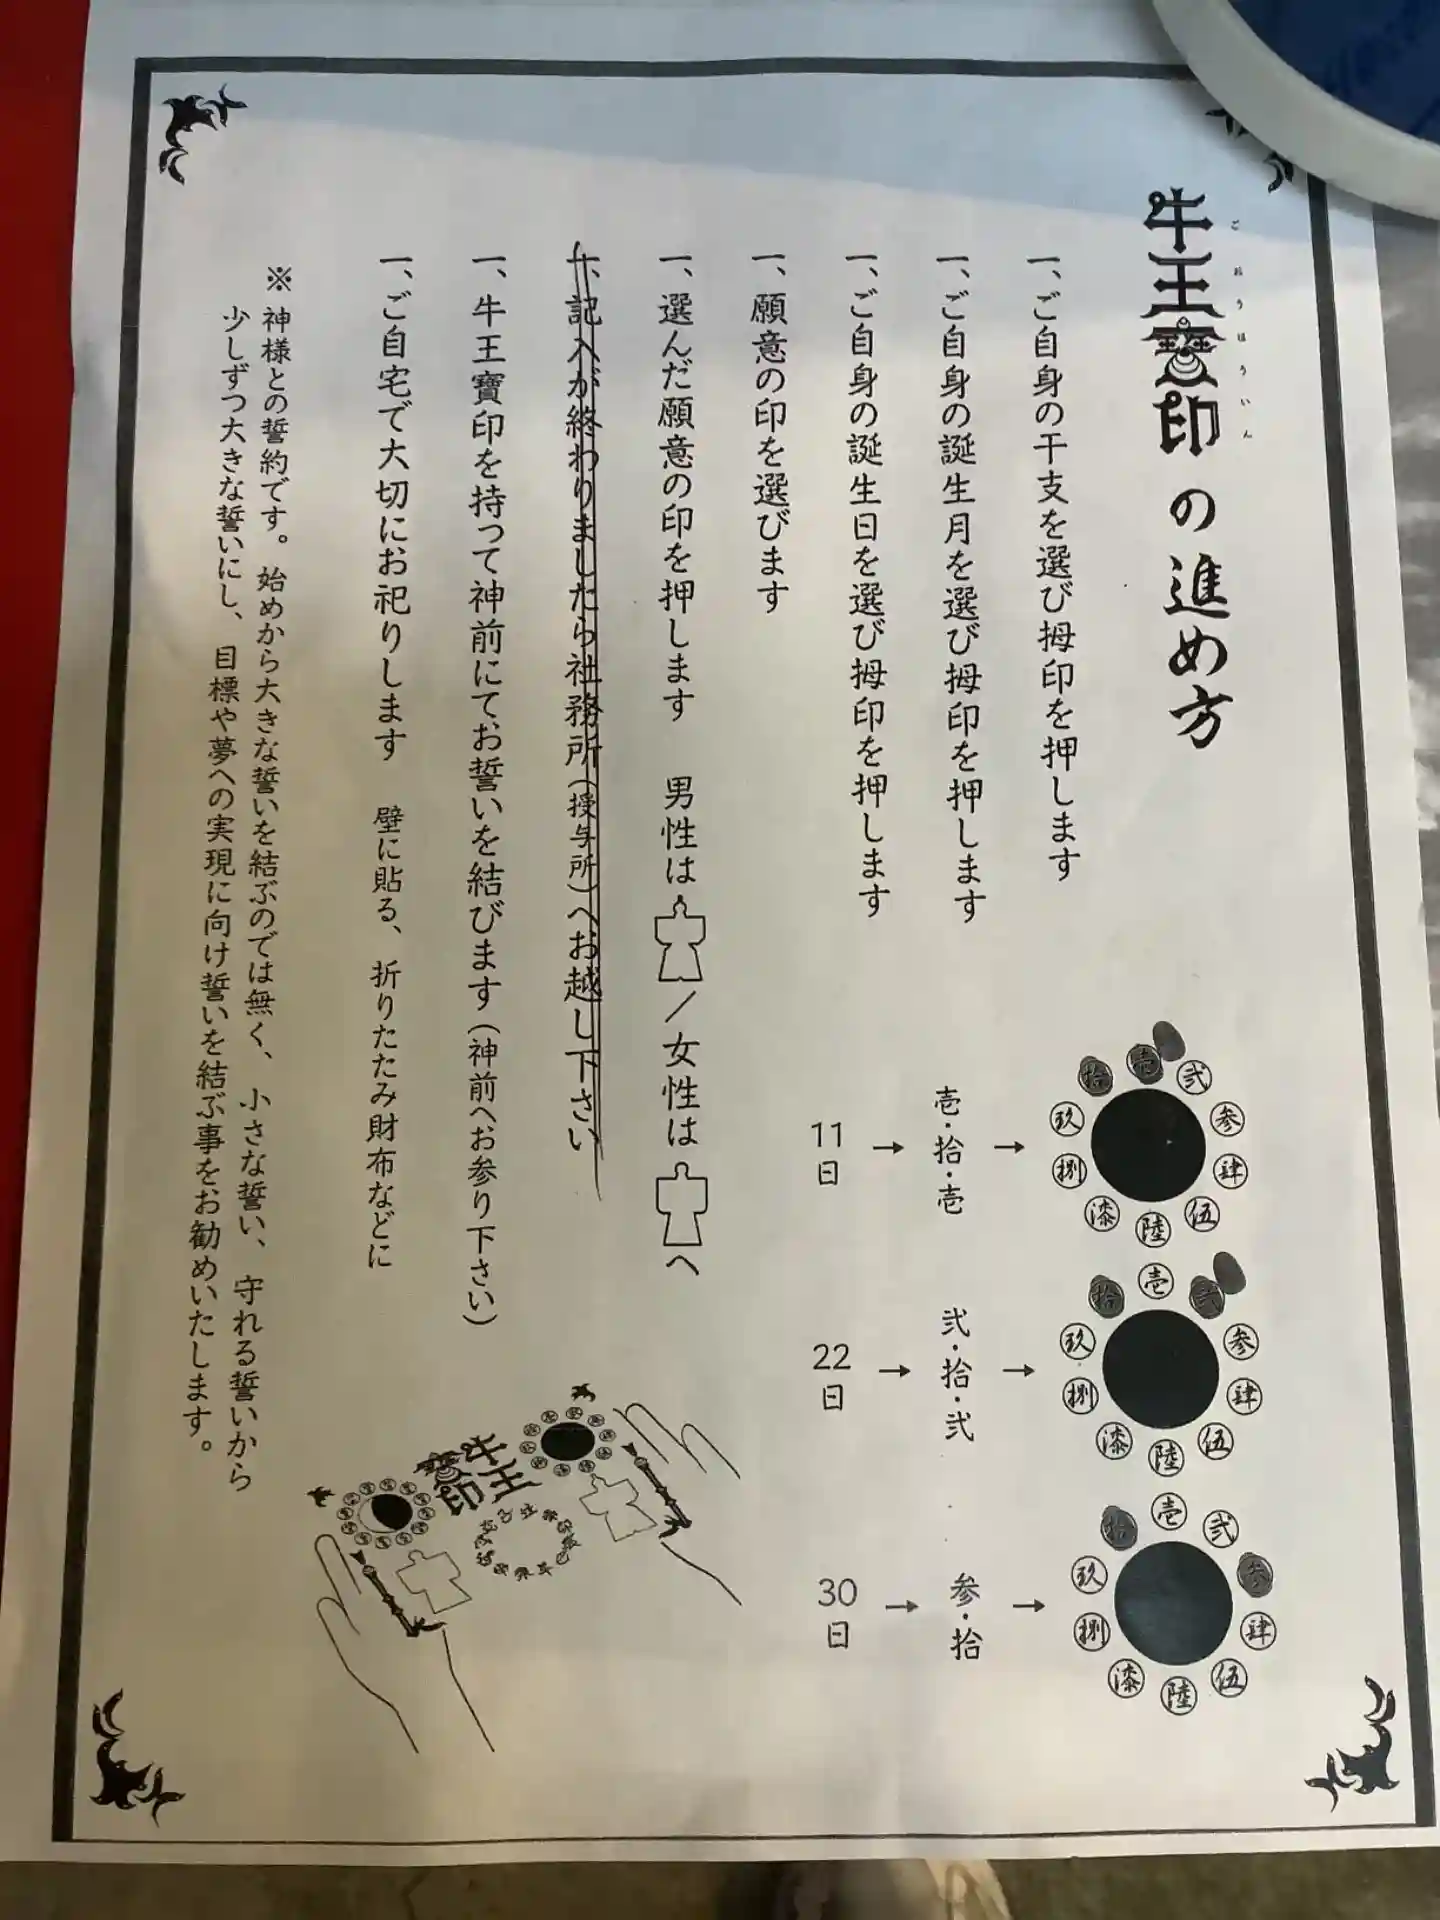 牛王寶印の進め方
ごおうほういん
一、ご自身の干支を選び拇印を押します
一、ご自身の誕生月を選び拇印を押します
一、ご自身の誕生日を選び拇印を押します
一、願意の印を選びます
一、選んだ願意の印を押します 男性は／女性はへ
一、記入が終わりましたら社務所（授与所）へお越し下さい
一、牛王寶印を持って神前にて、お誓いを結びます（神前へお参り下さい）
一、ご自宅で大切にお祀りします 壁に貼る、折りたたみ財布などに
※神様との誓約です。始めから大きな誓いを結ぶのでは無く、小さな誓い、守れる誓いから
少しずつ大きな誓いにし、目標や夢への実現に向け誓いを結ぶ事をお勧めいたします。
11日→壱・拾・壱→
壱弐参肆伍陸漆捌玖拾
22日→弐・拾・弐→
壱弐参肆伍陸漆捌玖拾
30日→参・拾→
壱弐参肆伍陸漆捌玖拾
牛王寶印